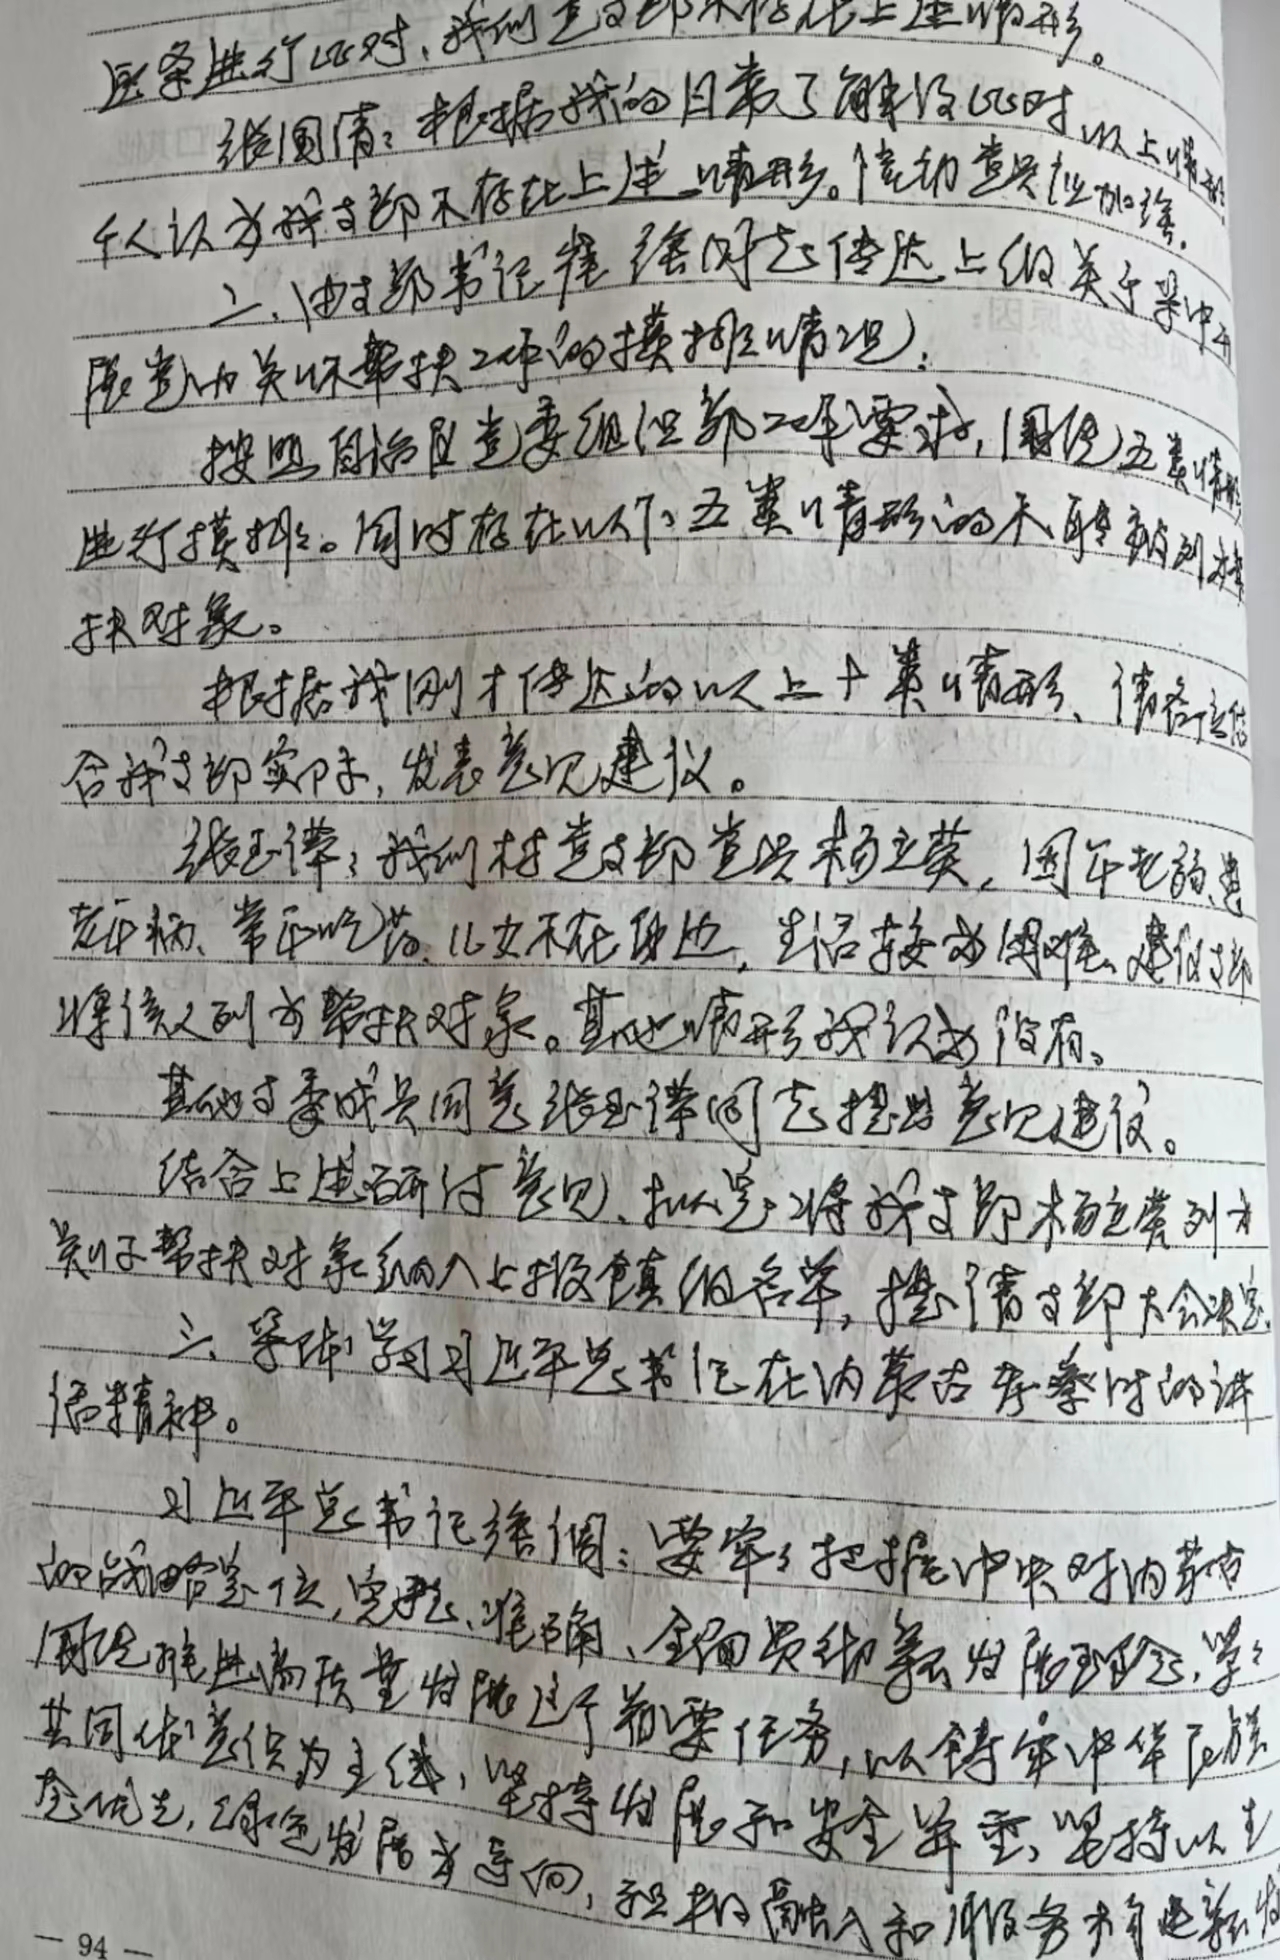 逐条进行比对，我们党支部不存在上述情形。
张国清：根据我的日常了解及比对，以上情形
个人认为我支部不存在上述情形。流动党员应加强。
二、由支部书记 强同志传达上级关于集中开
展党内关怀帮扶工作的摸排情况：
按照自治区党委组织部工作要求，围绕五类情形
进行摸排。同时存在以下五类情形的不再被列为帮
扶对象。
根据我刚才传达的以上十类情形、请各位结
合我支部实际，发表意见建议。
张玉 ：我们村党支部党员杨 英，因年老 患
老年病、常年吃药、儿女不在身边，生活较为困难、建议支部
将该人列为帮扶对象。其他情形我认为没有。
其他支委成员同意张玉 同志提出意见建议。
结合上述研讨意见、拟定：将我支部杨 列为
关怀帮扶对象纳入上报镇级名单，提请支部大会决定。
三、集体学习习近平总书记在内蒙古考察时的讲
话精神。
习近平总书记强调：要牢牢把握中央对内蒙古
的战略定位，完整、准确、全面贯彻新发展理念，紧紧
围绕推进高质量发展这个首要任务，以铸牢中华民族
共同体意识为主线，坚持发展和安全并重，坚持以生
态优先，绿色发展为导向，积极融入和服务构建新发
— 94 —